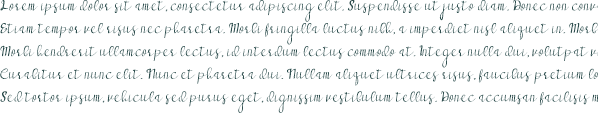 Lorem ipsum dolor sit amet, consectetur adipiscing elit. Suspendisse ut justo diam. Donec non conv
Etiam tempor vel risus nec pharetra. Morbi fringilla luctus nibh, a imperdiet nisl aliquet in. Morb
Morbi hendrerit ullamcorper lectus, id interdum lectus commodo at. Integer nulla dui, volutpat v
Curabitur et nunc elit. Nunc et pharetra dui. Nullam aliquet ultrices risus, faucibus pretium lo
Sed tortor ipsum, vehicula sed purus eget, dignissim vestibulum tellus. Donec accumsan facilisis m